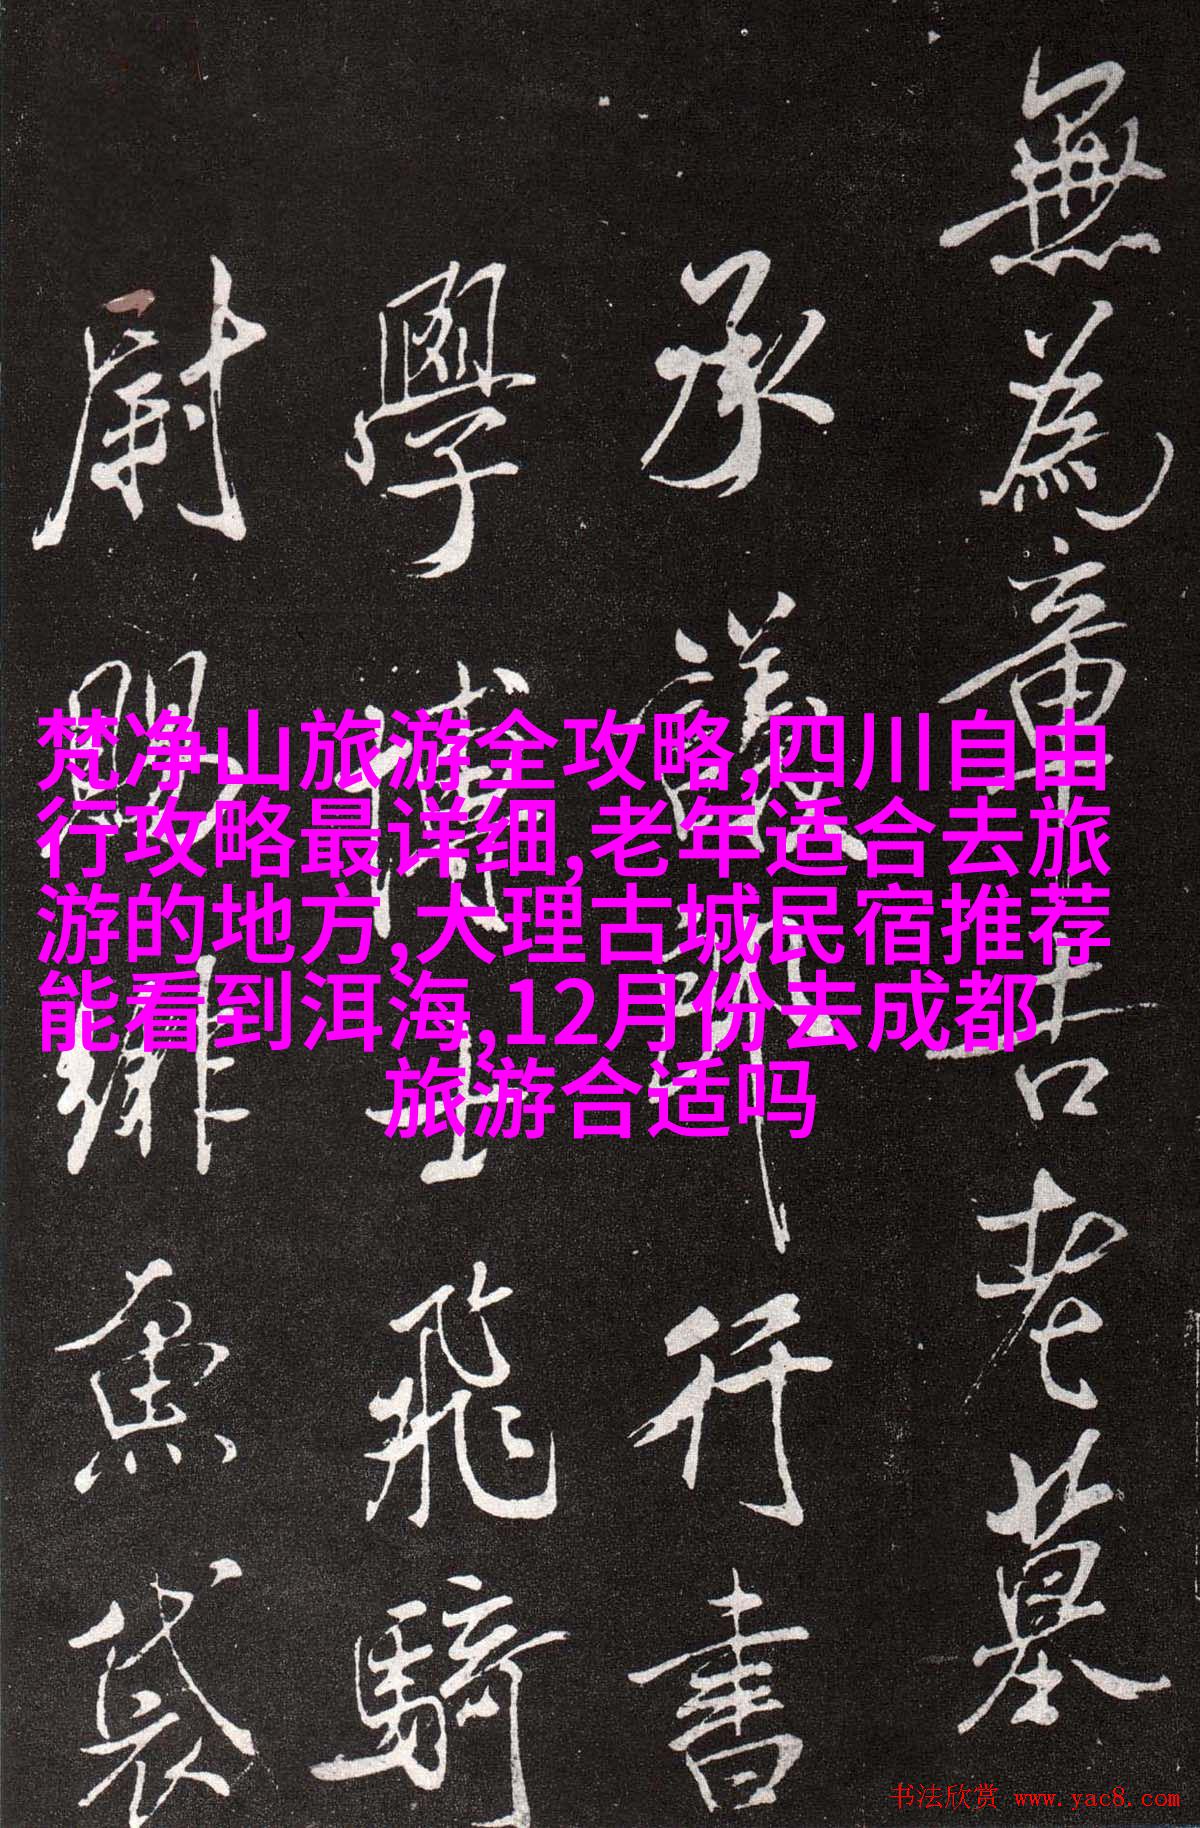 無為章吉老墓
承議郎行書
學博士飛騎
尉賜緋魚袋
梵净山旅游全攻略,四川自由
行攻略最详细,老年适合去旅
游的地方,大理古城民宿推荐
能看到洱海,12月份去成都
旅游合适吗
书法欣赏 www.yac8.com